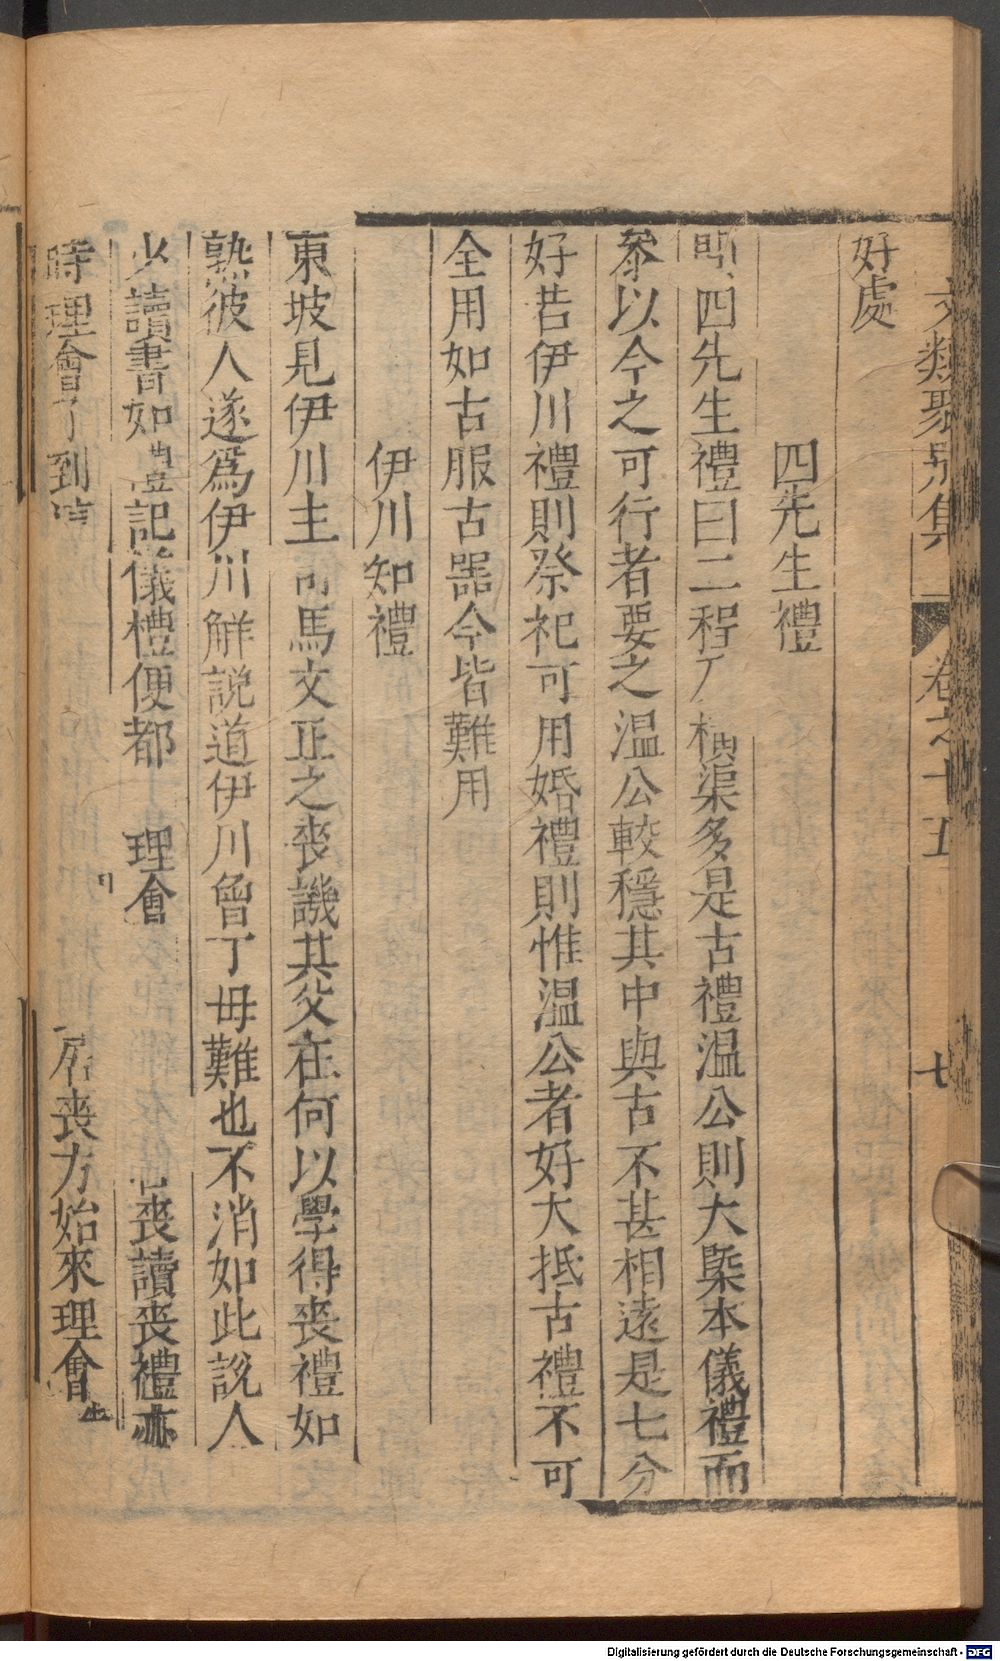 文類聚別集 卷之十五 七
好處
四先生禮
問四先生禮曰二程 橫渠多是古禮溫公則大槩本儀禮而
叅以今之可行者要之溫公較穩其中與古不甚相遠是七分
好若伊川禮則祭祀可用婚禮則惟溫公者好大抵古禮不可
全用如古服古器今皆難用
伊川知禮
東坡見伊川主司馬文正之喪譏其父在何以學得喪禮如
熟彼人遂爲伊川解説道伊川曾丁母難也不消如此説人
少讀書如禮記儀禮便都 理會 喪讀喪禮亦
時理會了到 居喪方始來理會
Digitalisierung gefördert durch die Deutsche Forschungsgemeinschaft - DFG